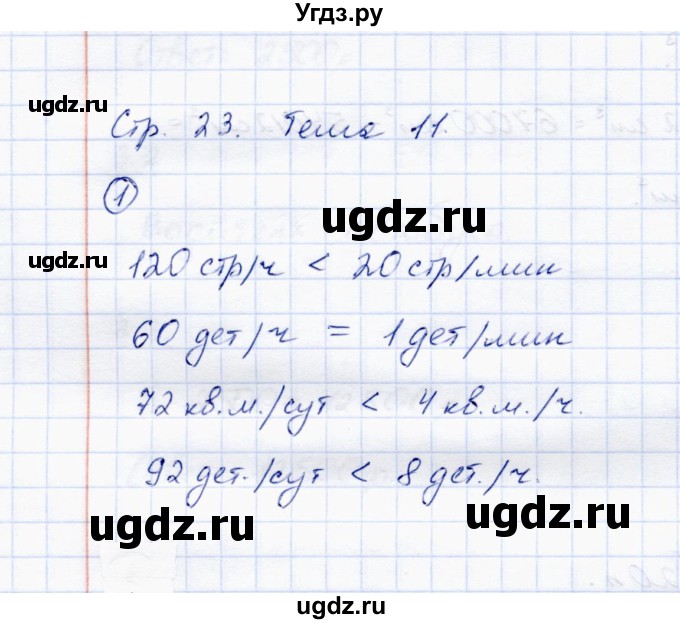 Угдз.ру
ugdz.ru
Стр. 23. Тема 11.
1
ugdz.ru
ugdz.ru
120 стр/ч < 20 стр/мин
60 дет/ч = 1 дет/мин
72 кв.м./сут < 4 кв.м./ч.
92 дет./сут < 8 дет./ч.
ugdz.ru
ugdz.ru
ugdz.ru